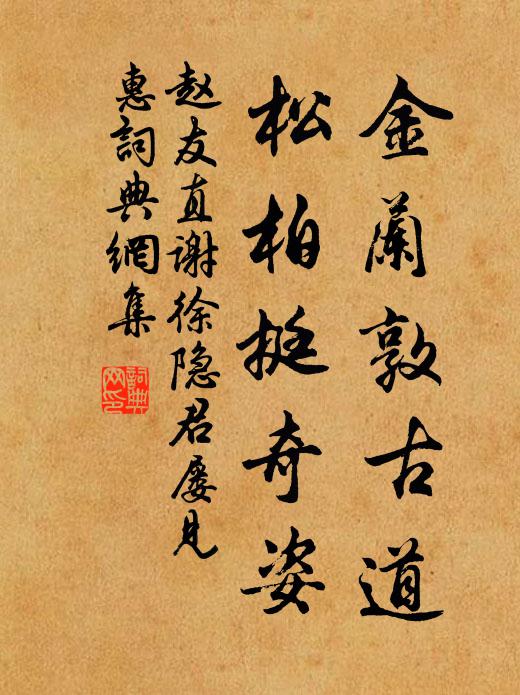 金蘭敦古道
松柏挺奇姿
赵友直谢徐隐君屡见
惠詞典網集
詞典网印